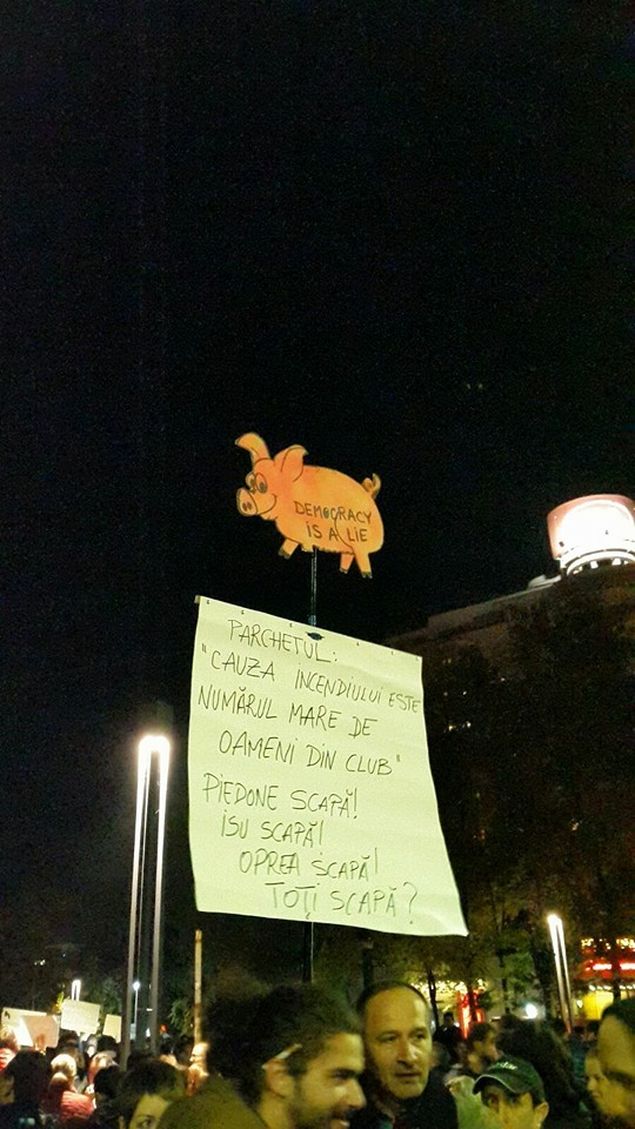 DEMOCRACY
IS A LIE
PARCHETUL:
"CAUZA INCENDIULUI ESTE
NUMĂRUL MARE DE
OAMENI DIN CLUB"
PIEDONE SCAPĂ!
ISU SCAPĂ!
OPREA SCAPĂ!
TOȚI SCAPĂ?